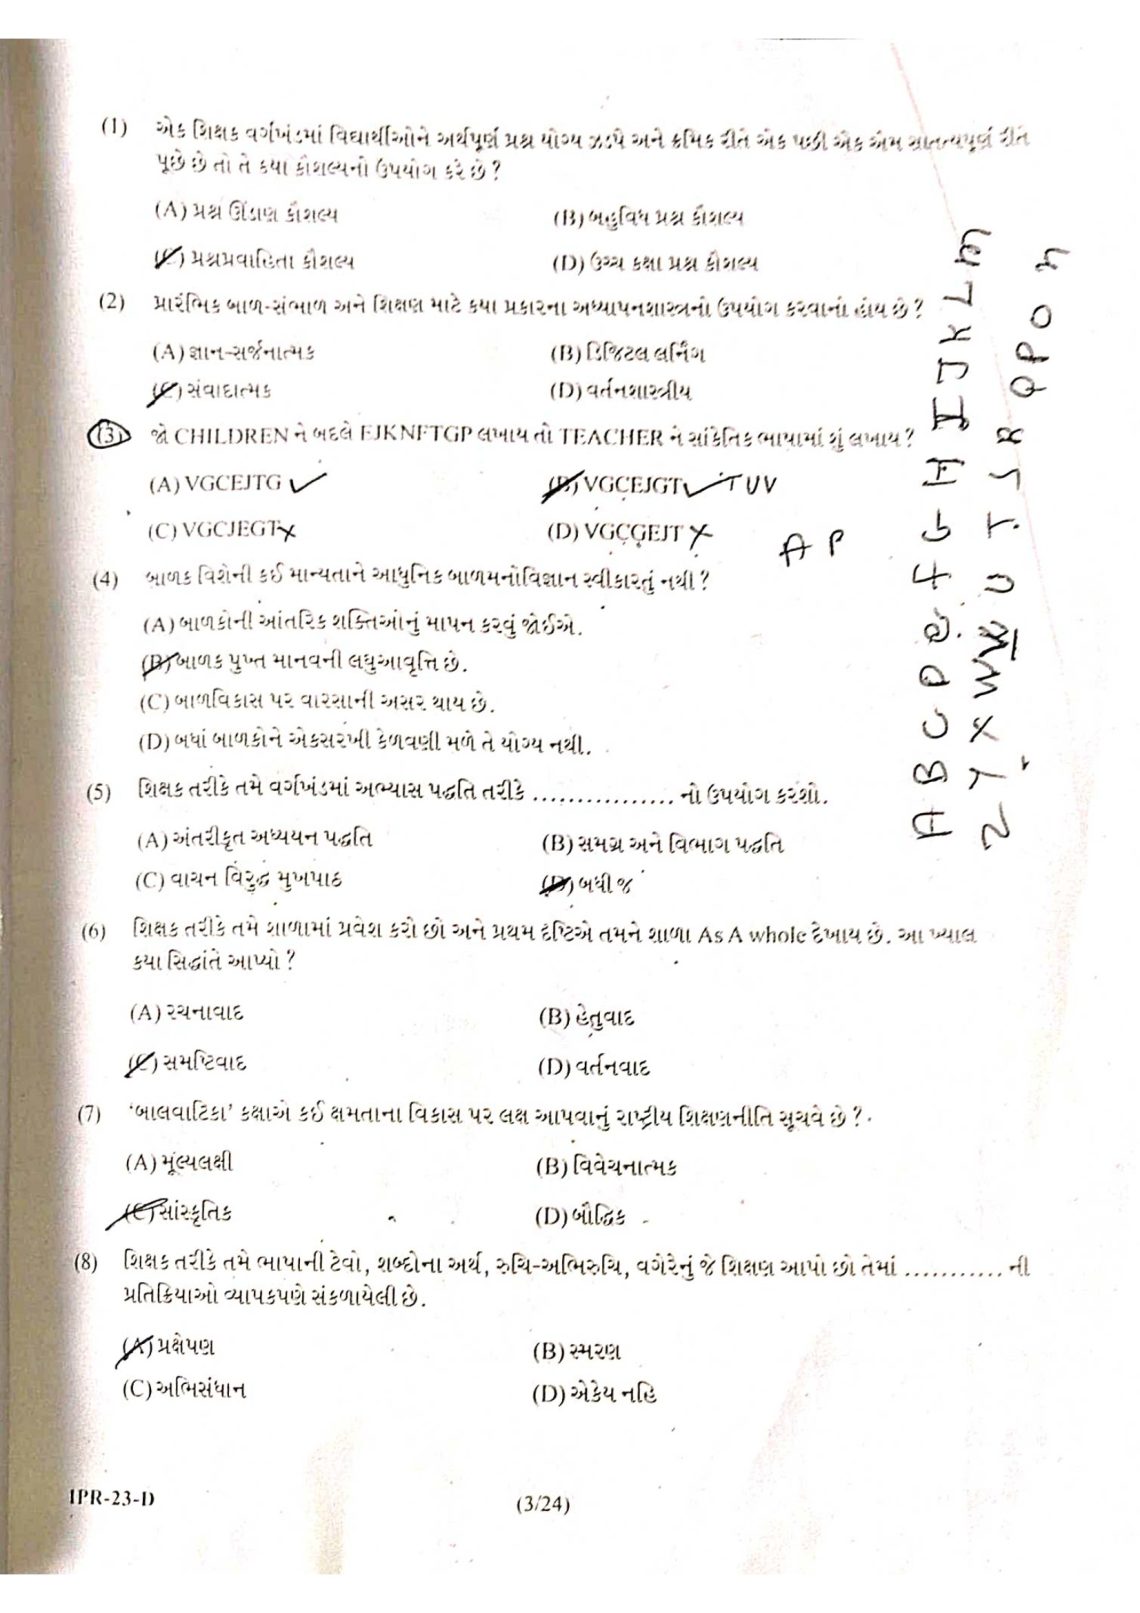 (1) એક શિક્ષક વર્ગખંડમાં વિદ્યાર્થીઓને અર્થપૂર્ણ પ્રશ્ન યોગ્ય ઝડપે અને ક્રમિક રીતે એક પછી એક એમ સાતત્યપૂર્ણ રીતે
પૂછે છે તો તે કયા કૌશલ્યનો ઉપયોગ કરે છે ?
(A) પ્રશ્ન ઊંડાણ કૌશલ્ય (B) બહુવિધ પ્રશ્ન કૌશલ્ય
(C) પ્રશ્નપ્રવાહિતા કૌશલ્ય (D) ઉચ્ચ કક્ષા પ્રશ્ન કૌશલ્ય
(2) પ્રારંભિક બાળ-સંભાળ અને શિક્ષણ માટે કયા પ્રકારના અધ્યાપનશાસ્ત્રનો ઉપયોગ કરવાનો હોય છે ?
(A) જ્ઞાન-સર્જનાત્મક (B) ડિજિટલ લર્નિંગ
(C) સંવાદાત્મક (D) વર્તનશાસ્ત્રીય
(3) જો CHILDREN ને બદલે EJKNFTGP લખાય તો TEACHER ને સાંકેતિક ભાષામાં શું લખાય ?
(A) VGCEJTG (B) VGCEJGT TUV
(C) VGCJEGT (D) VGCGEJT
A P
(4) બાળક વિશેની કઈ માન્યતાને આધુનિક બાળમનોવિજ્ઞાન સ્વીકારતું નથી ?
(A) બાળકોની આંતરિક શક્તિઓનું માપન કરવું જોઈએ.
(B) બાળક પુખ્ત માનવની લઘુઆવૃત્તિ છે.
(C) બાળવિકાસ પર વારસાની અસર થાય છે.
(D) બધાં બાળકોને એકસરખી કેળવણી મળે તે યોગ્ય નથી.
(5) શિક્ષક તરીકે તમે વર્ગખંડમાં અભ્યાસ પદ્ધતિ તરીકે ................ નો ઉપયોગ કરશો.
(A) અંતરીકૃત અધ્યયન પદ્ધતિ (B) સમગ્ર અને વિભાગ પદ્ધતિ
(C) વાચન વિરુદ્ધ મુખપાઠ (D) બધી જ
(6) શિક્ષક તરીકે તમે શાળામાં પ્રવેશ કરો છો અને પ્રથમ દૃષ્ટિએ તમને શાળા As A whole દેખાય છે. આ ખ્યાલ
કયા સિદ્ધાંતે આપ્યો ?
(A) રચનાવાદ (B) હેતુવાદ
(C) સમષ્ટિવાદ (D) વર્તનવાદ
(7) ‘બાલવાટિકા’ કક્ષાએ કઈ ક્ષમતાના વિકાસ પર લક્ષ આપવાનું રાષ્ટ્રીય શિક્ષણનીતિ સૂચવે છે ?
(A) મૂલ્યલક્ષી (B) વિવેચનાત્મક
(C) સાંસ્કૃતિક (D) બૌદ્ધિક
(8) શિક્ષક તરીકે તમે ભાષાની ટેવો, શબ્દોના અર્થ, રુચિ-અભિરુચિ, વગેરેનું જે શિક્ષણ આપો છો તેમાં ........... ની
પ્રતિક્રિયાઓ વ્યાપકપણે સંકળાયેલી છે.
(A) પ્રક્ષેપણ (B) સ્મરણ
(C) અભિસંધાન (D) એકેય નહિ
A B C D e f G H I J K L M
Z Y X W V U T S R Q P O n
IPR-23-D (3/24)